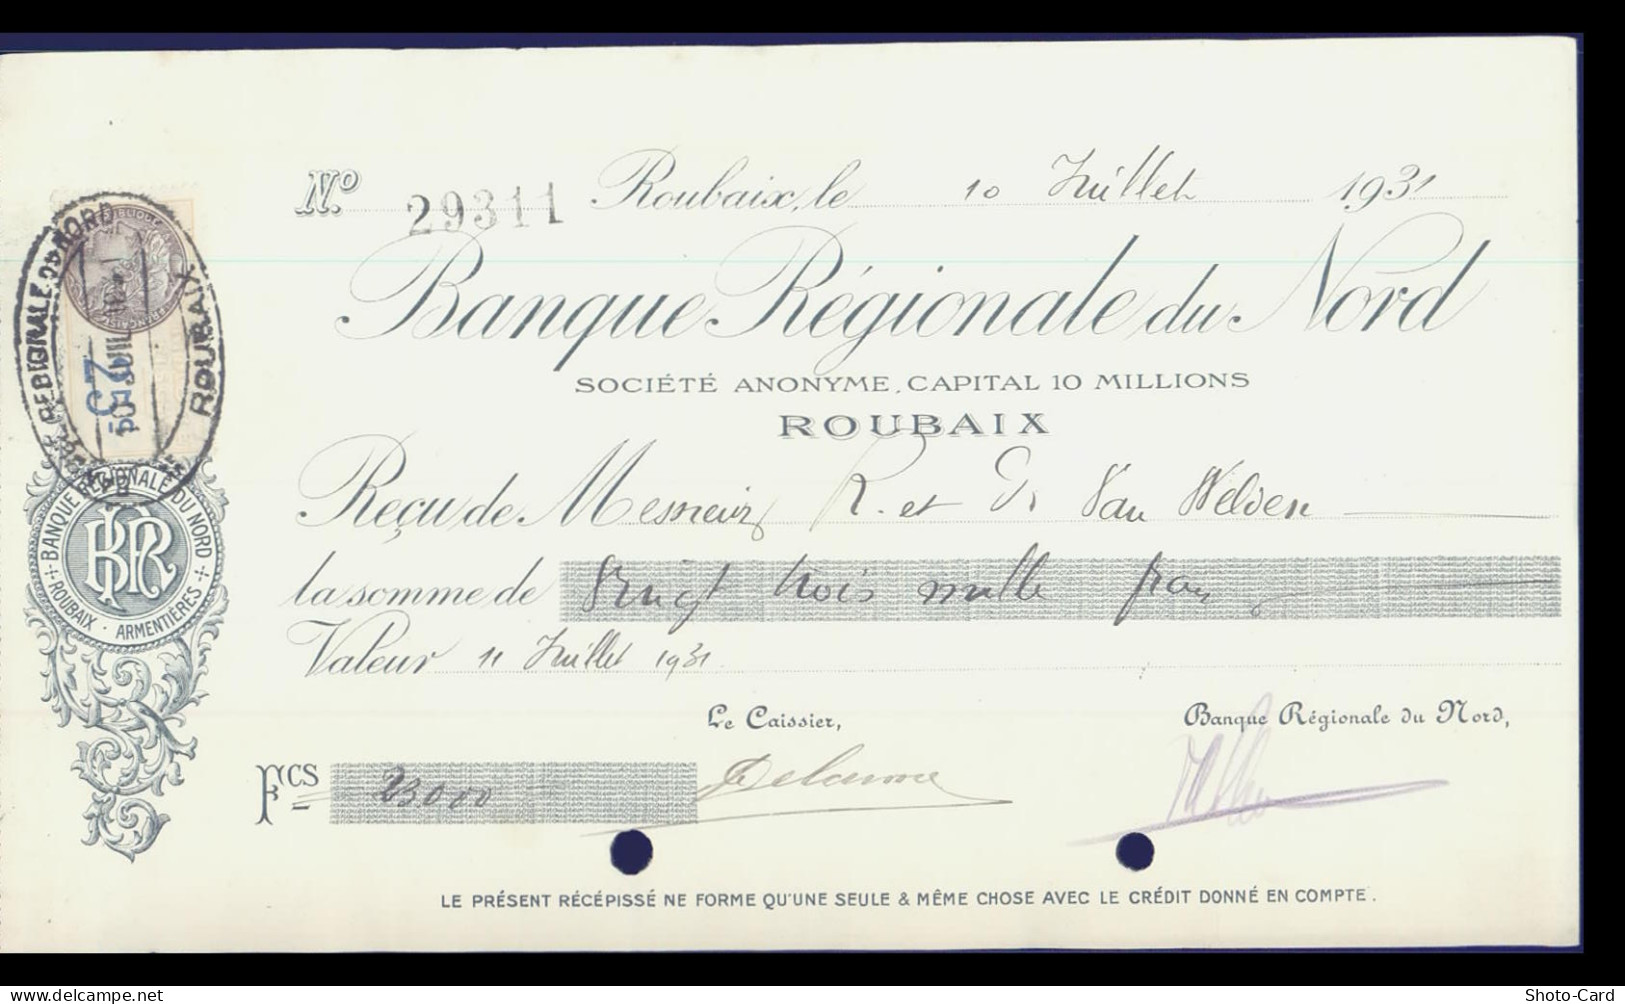 Nº 29311 Roubaix, le 10 Juillet 1931
Banque Régionale du Nord
SOCIÉTÉ ANONYME, CAPITAL 10 MILLIONS
ROUBAIX
Reçu de Messieurs R. et G. Van Welden
la somme de Vingt trois mille francs
Valeur 11 Juillet 1931
Le Caissier,
Banque Régionale du Nord,
Fcs 23000
Delanne
LE PRÉSENT RÉCÉPISSÉ NE FORME QU'UNE SEULE & MÊME CHOSE AVEC LE CRÉDIT DONNÉ EN COMPTE.
BANQUE RÉGIONALE DU NORD
ROUBAIX · ARMENTIÈRES
BR
RÉPUBLIQUE
FRANÇAISE
25
ROUBAIX
Shoto-Card